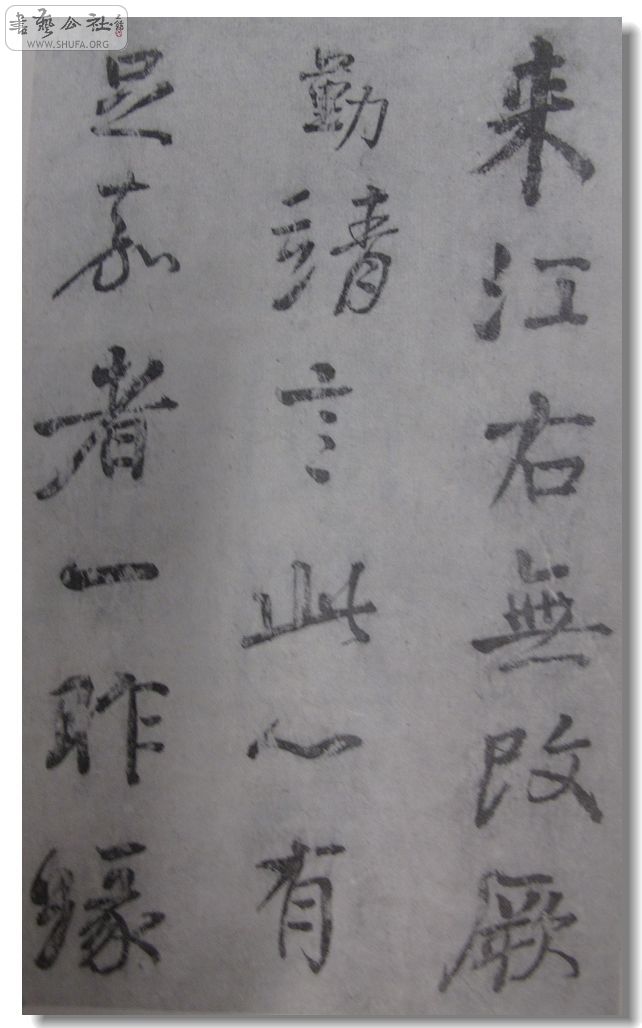 書藝公社
WWW.SHUFA.ORG
来江右無改厥
勤靖言此心有
足嘉者一昨緣